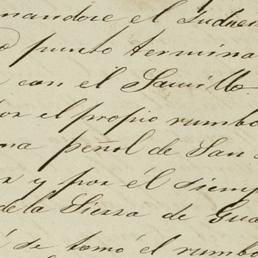 el
punto termina
con el Saucillo
por el propio rumbo
peñol de San
y por él siemp
de la Sierra de Gua
se tomó el rumbo